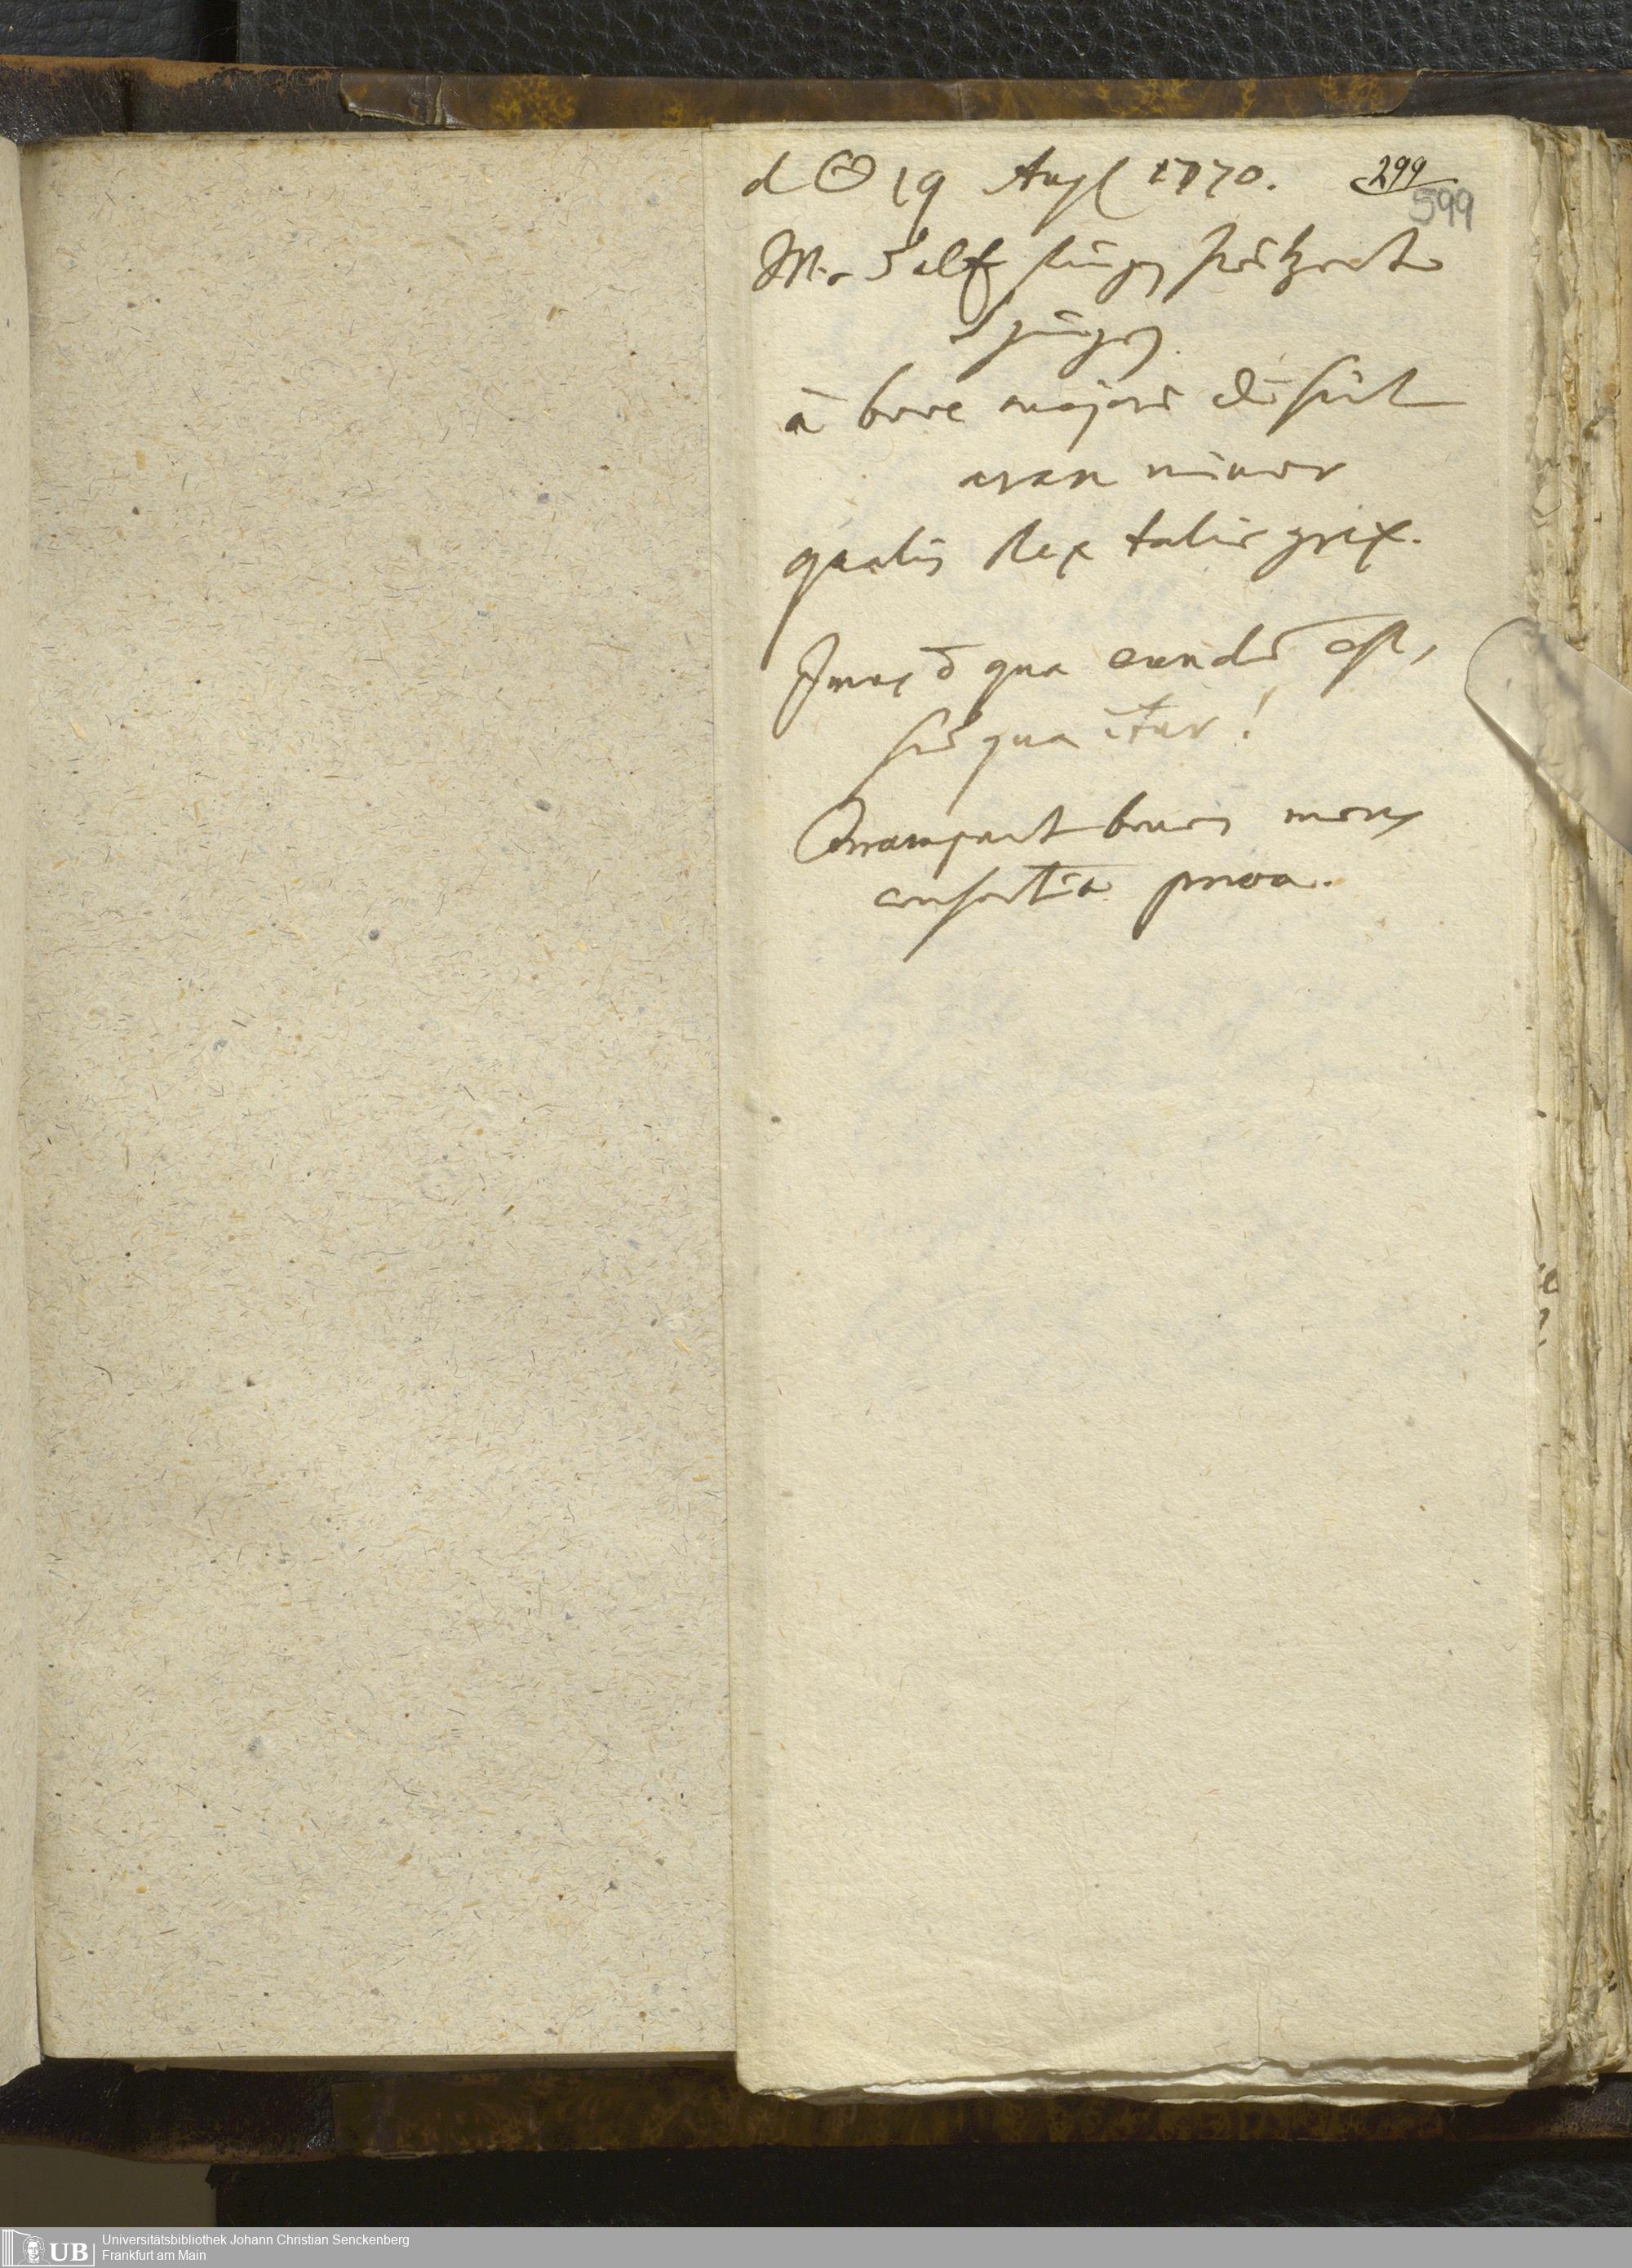 d ☉ 19 Augl 1770. 299
599
à bove majori discit
aran minor
qualis Rex talis grex.
qua eundū est,
sed qua itur!
Corrumpunt bonos mores
consortia prava.
UB Universitätsbibliothek Johann Christian Senckenberg
Frankfurt am Main